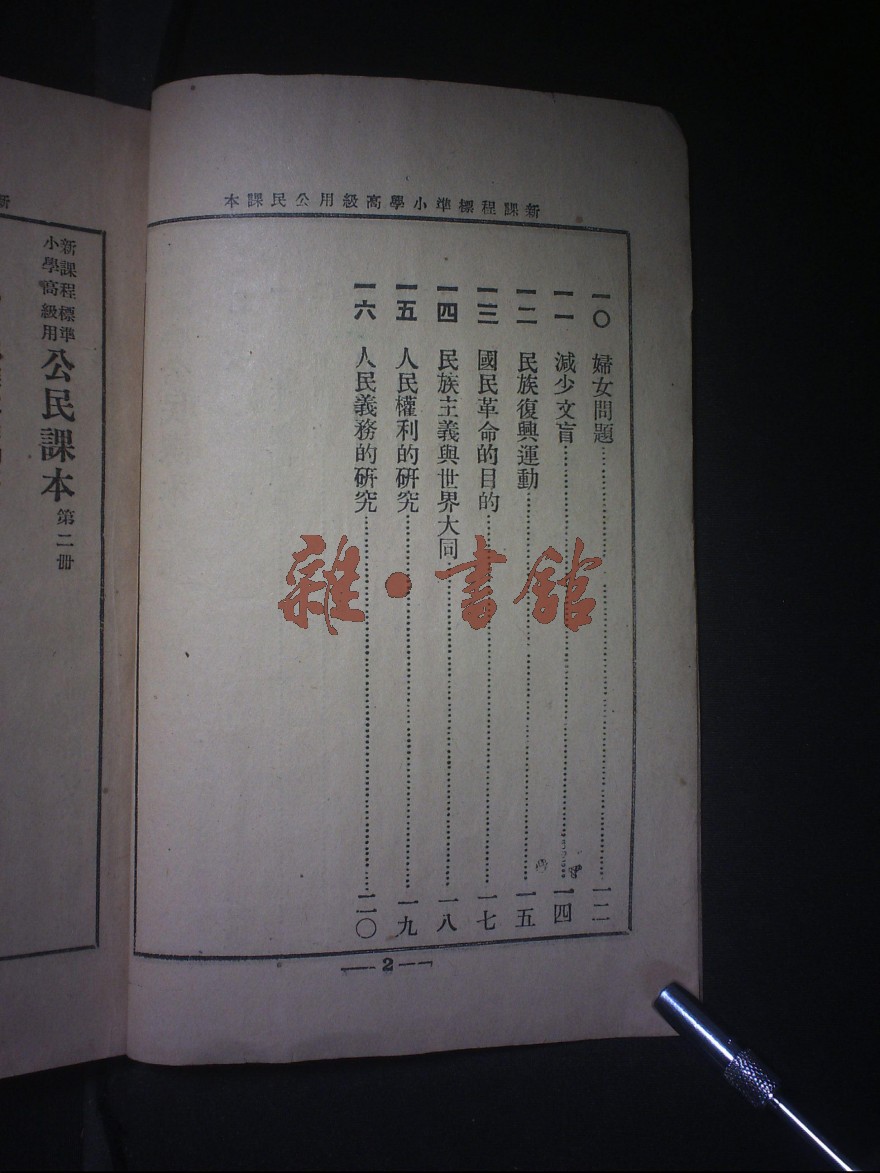 新課程標準小學高級用公民課本
一〇 婦女問題……一二
一一 減少文盲……一四
一二 民族復興運動……一五
一三 國民革命的目的……一七
一四 民族主義與世界大同……一八
一五 人民權利的研究……一九
一六 人民義務的研究……二〇
2
雜·書館
新
新課程標準
小學高級用
公民課本 第二冊